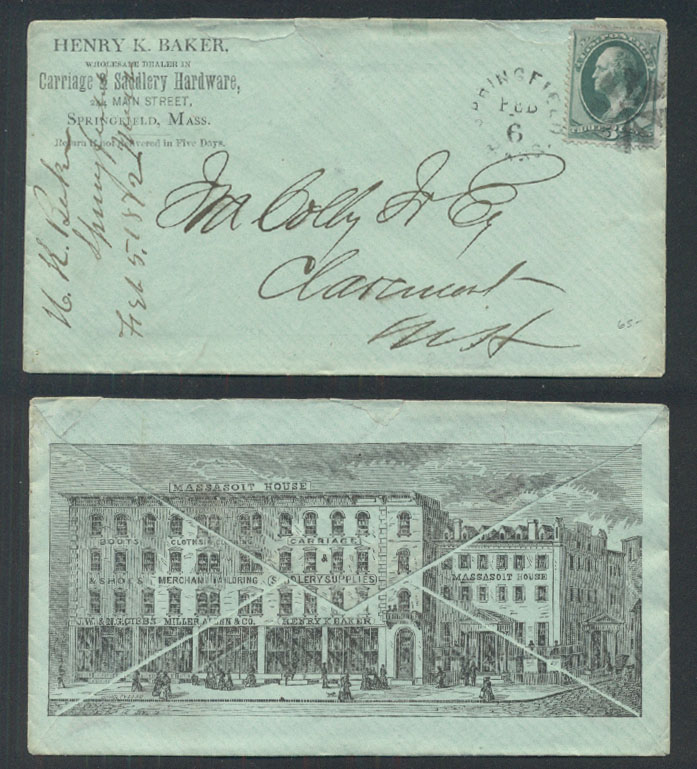 HENRY K. BAKER,
WHOLESALE DEALER IN
Carriage & Saddlery Hardware,
MAIN STREET,
SPRINGFIELD, MASS.
Return if not delivered in Five Days.
SPRINGFIELD
FEB
6
MASS.
H. K. Baker
Feb 5. 1872
Colby Jr Esq
Claremont
N.H
65-
MASSASOIT HOUSE
BOOTS CLOTHS & CARRIAGE
&
& SHOES MERCHANT TAILORING SADDLERY SUPPLIES
MASSASOIT HOUSE
GIBBS MILLER ALLEN & CO. HENRY K BAKER